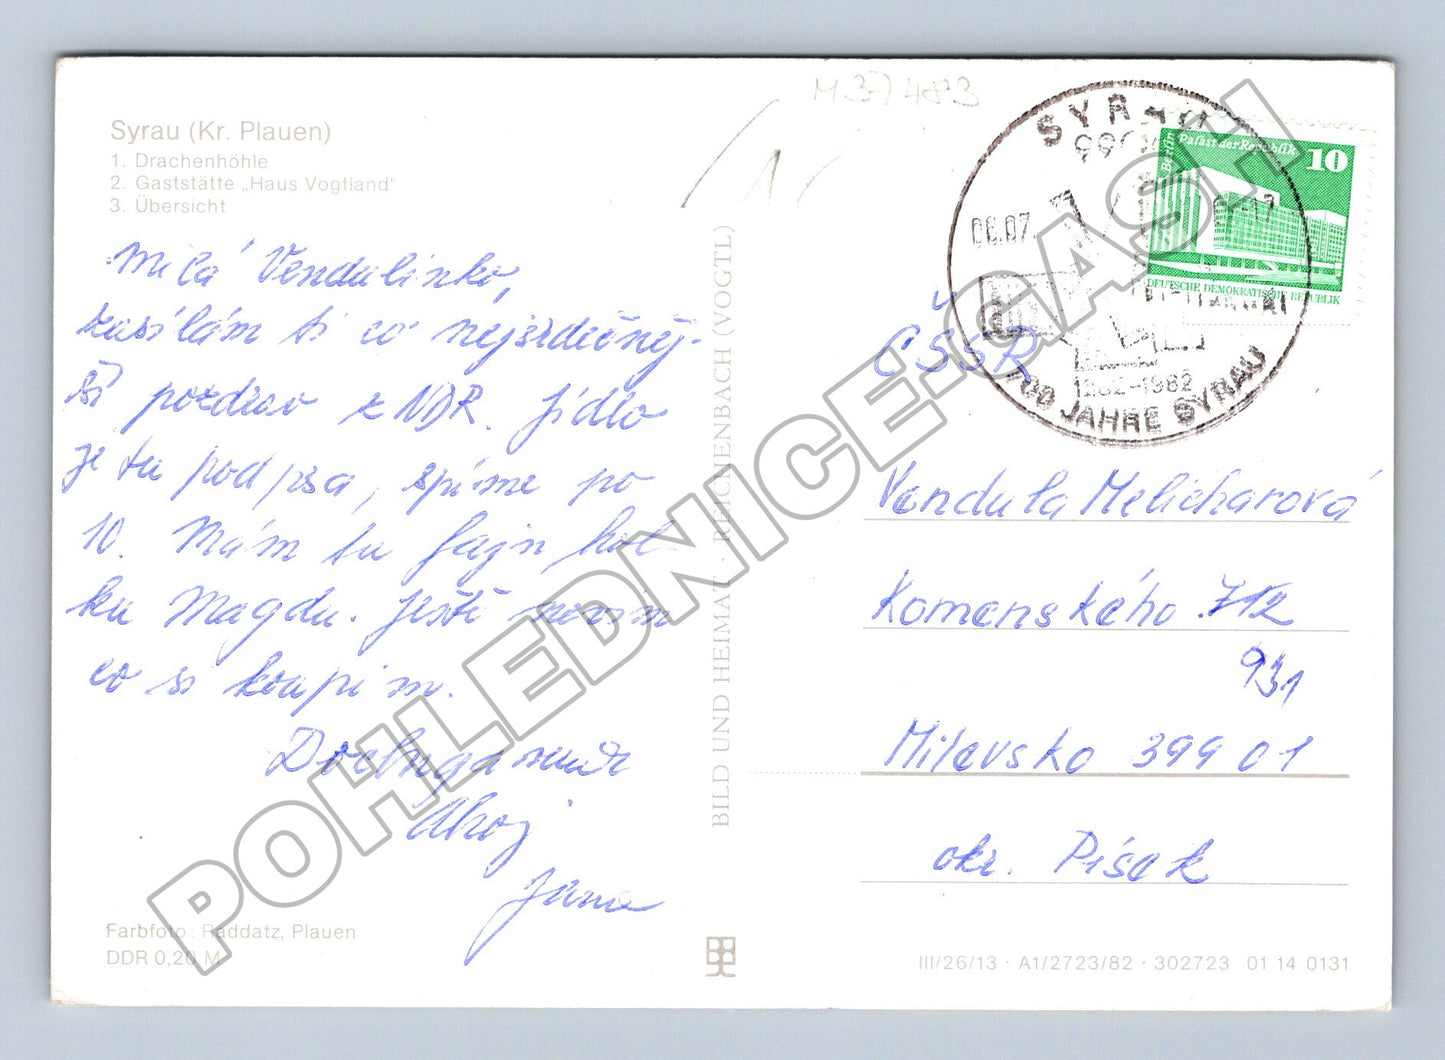 M37483
Syrau (Kr. Plauen)
1. Drachenhöhle
2. Gaststätte „Haus Vogtland"
3. Übersicht
Milá Vendulinko,
zasílám ti co nejsrdečněj-
ší pozdrav z NDR. Jídlo
je tu pod psa, spíme po
10. Mám tu fajn hol-
ku Magdu. Ještě nevím
co si koupím.
Ahoj
Jana
Farbfoto: Raddatz, Plauen
DDR 0,20 M
BILD UND HEIMAT · REICHENBACH (VOGTL)
SYRAU
9901
06.07
700 JAHRE SYRAU
1282-1982
Berlin Palast der Republik 10
DEUTSCHE DEMOKRATISCHE REPUBLIK
ČSSR
Vendula Melicharová
Komenského 712
931
Milevsko 399 01
okr. Písek
III/26/13 · A1/2723/82 · 302723 01 14 0131
POHLEDNICE-GASH